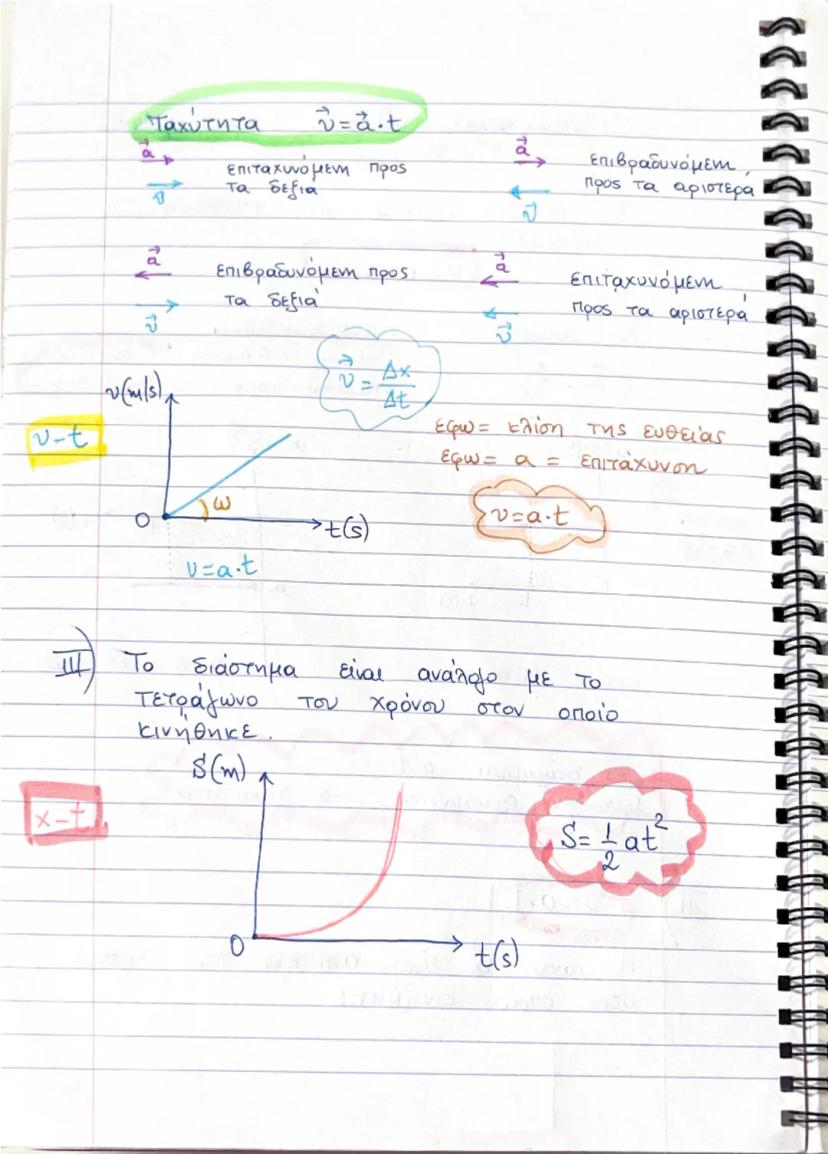 Ταχύτητα v⃗ = a⃗ · t
a⃗
v⃗
επιταχυνόμενη προς
τα δεξιά
a⃗
v⃗
επιβραδυνόμενη
προς τα αριστερά
a⃗
v⃗
επιβραδυνόμενη προς
τα δεξιά
a⃗
v⃗
επιταχυνόμενη
προς τα αριστερά
v⃗ = Δx/Δt
υ-t
υ(m/s)
ω
0
t(s)
υ=a·t
εφω= κλίση της ευθείας
εφω= a = επιτάχυνση
υ=a·t
III) Το διάστημα είναι ανάλογο με το
τετράγωνο του χρόνου στον οποίο
κινήθηκε.
x-t
S(m)
0
t(s)
S= 1/2 at²